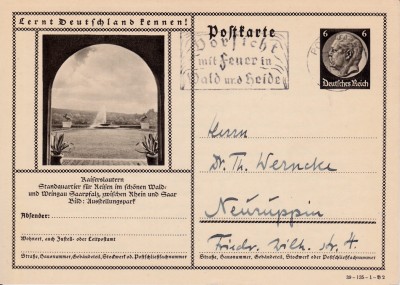 Lernt Deutschland kennen!
Postkarte
6 6
Deutsches Reich
Vorsicht
mit Feuer in
Wald und Heide
Kaiserslautern
Standquartier für Reisen im schönen Wald-
und Weingau Saarpfalz, zwischen Rhein und Saar
Bild: Ausstellungspark
Absender:
Wohnort, auch Zustell- oder Leitpostamt
Straße, Hausnummer, Gebäudeteil, Stockwerk od. Postschließfachnummer
Herrn
Dr. Th. Werncke
Neuruppin
Friedr. Wilh. str.
Straße, Hausnummer, Gebäudeteil, Stockwerk oder Postschließfachnummer